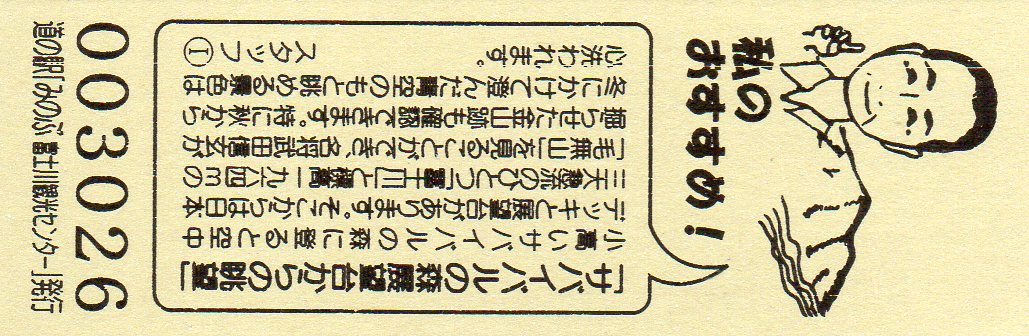 私の
おすすめ!
「サバイバルの森展望台からの眺望」
小高いサバイバルの森に登ると空中
デッキと展望台があります。そこからは日本
三大急流のひとつ「富士川」と標高一九六四mの
「毛無山」を見ることができ、名将武田信玄が
掘らせた金山跡も確認できます。特に秋から
冬にかけて澄んだ青空のもと眺める景色は
心洗われます。
スタッフ Ⓘ
003026
道の駅「みのぶ 富士川観光センター」発行